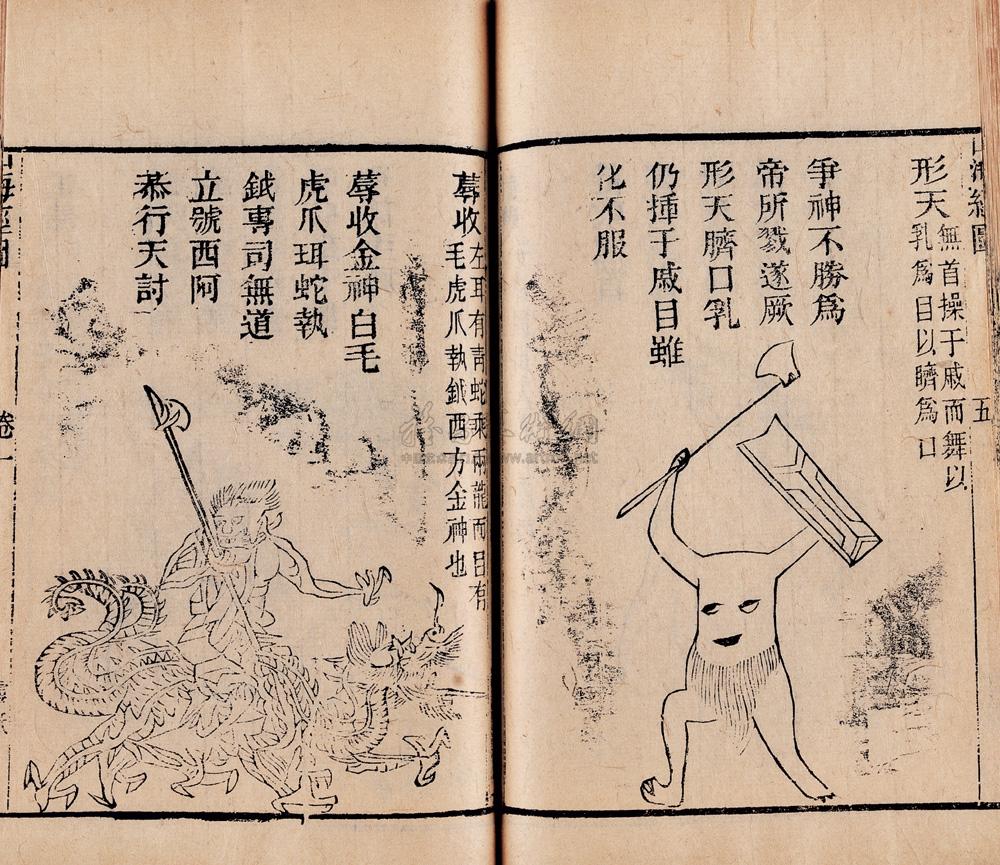 海經圖
五
形天
無首操于戚而舞以
乳爲目以臍爲口
爭神不勝爲
帝所戮遂厥
形天臍口乳
仍揮于戚目雖
化不服
蓐收
左耳有青蛇乘兩龍而目有
毛虎爪執鉞西方金神也
蓐收金神白毛
虎爪珥蛇執
鉞專司無道
立號西阿
恭行天討
海經圖
卷一